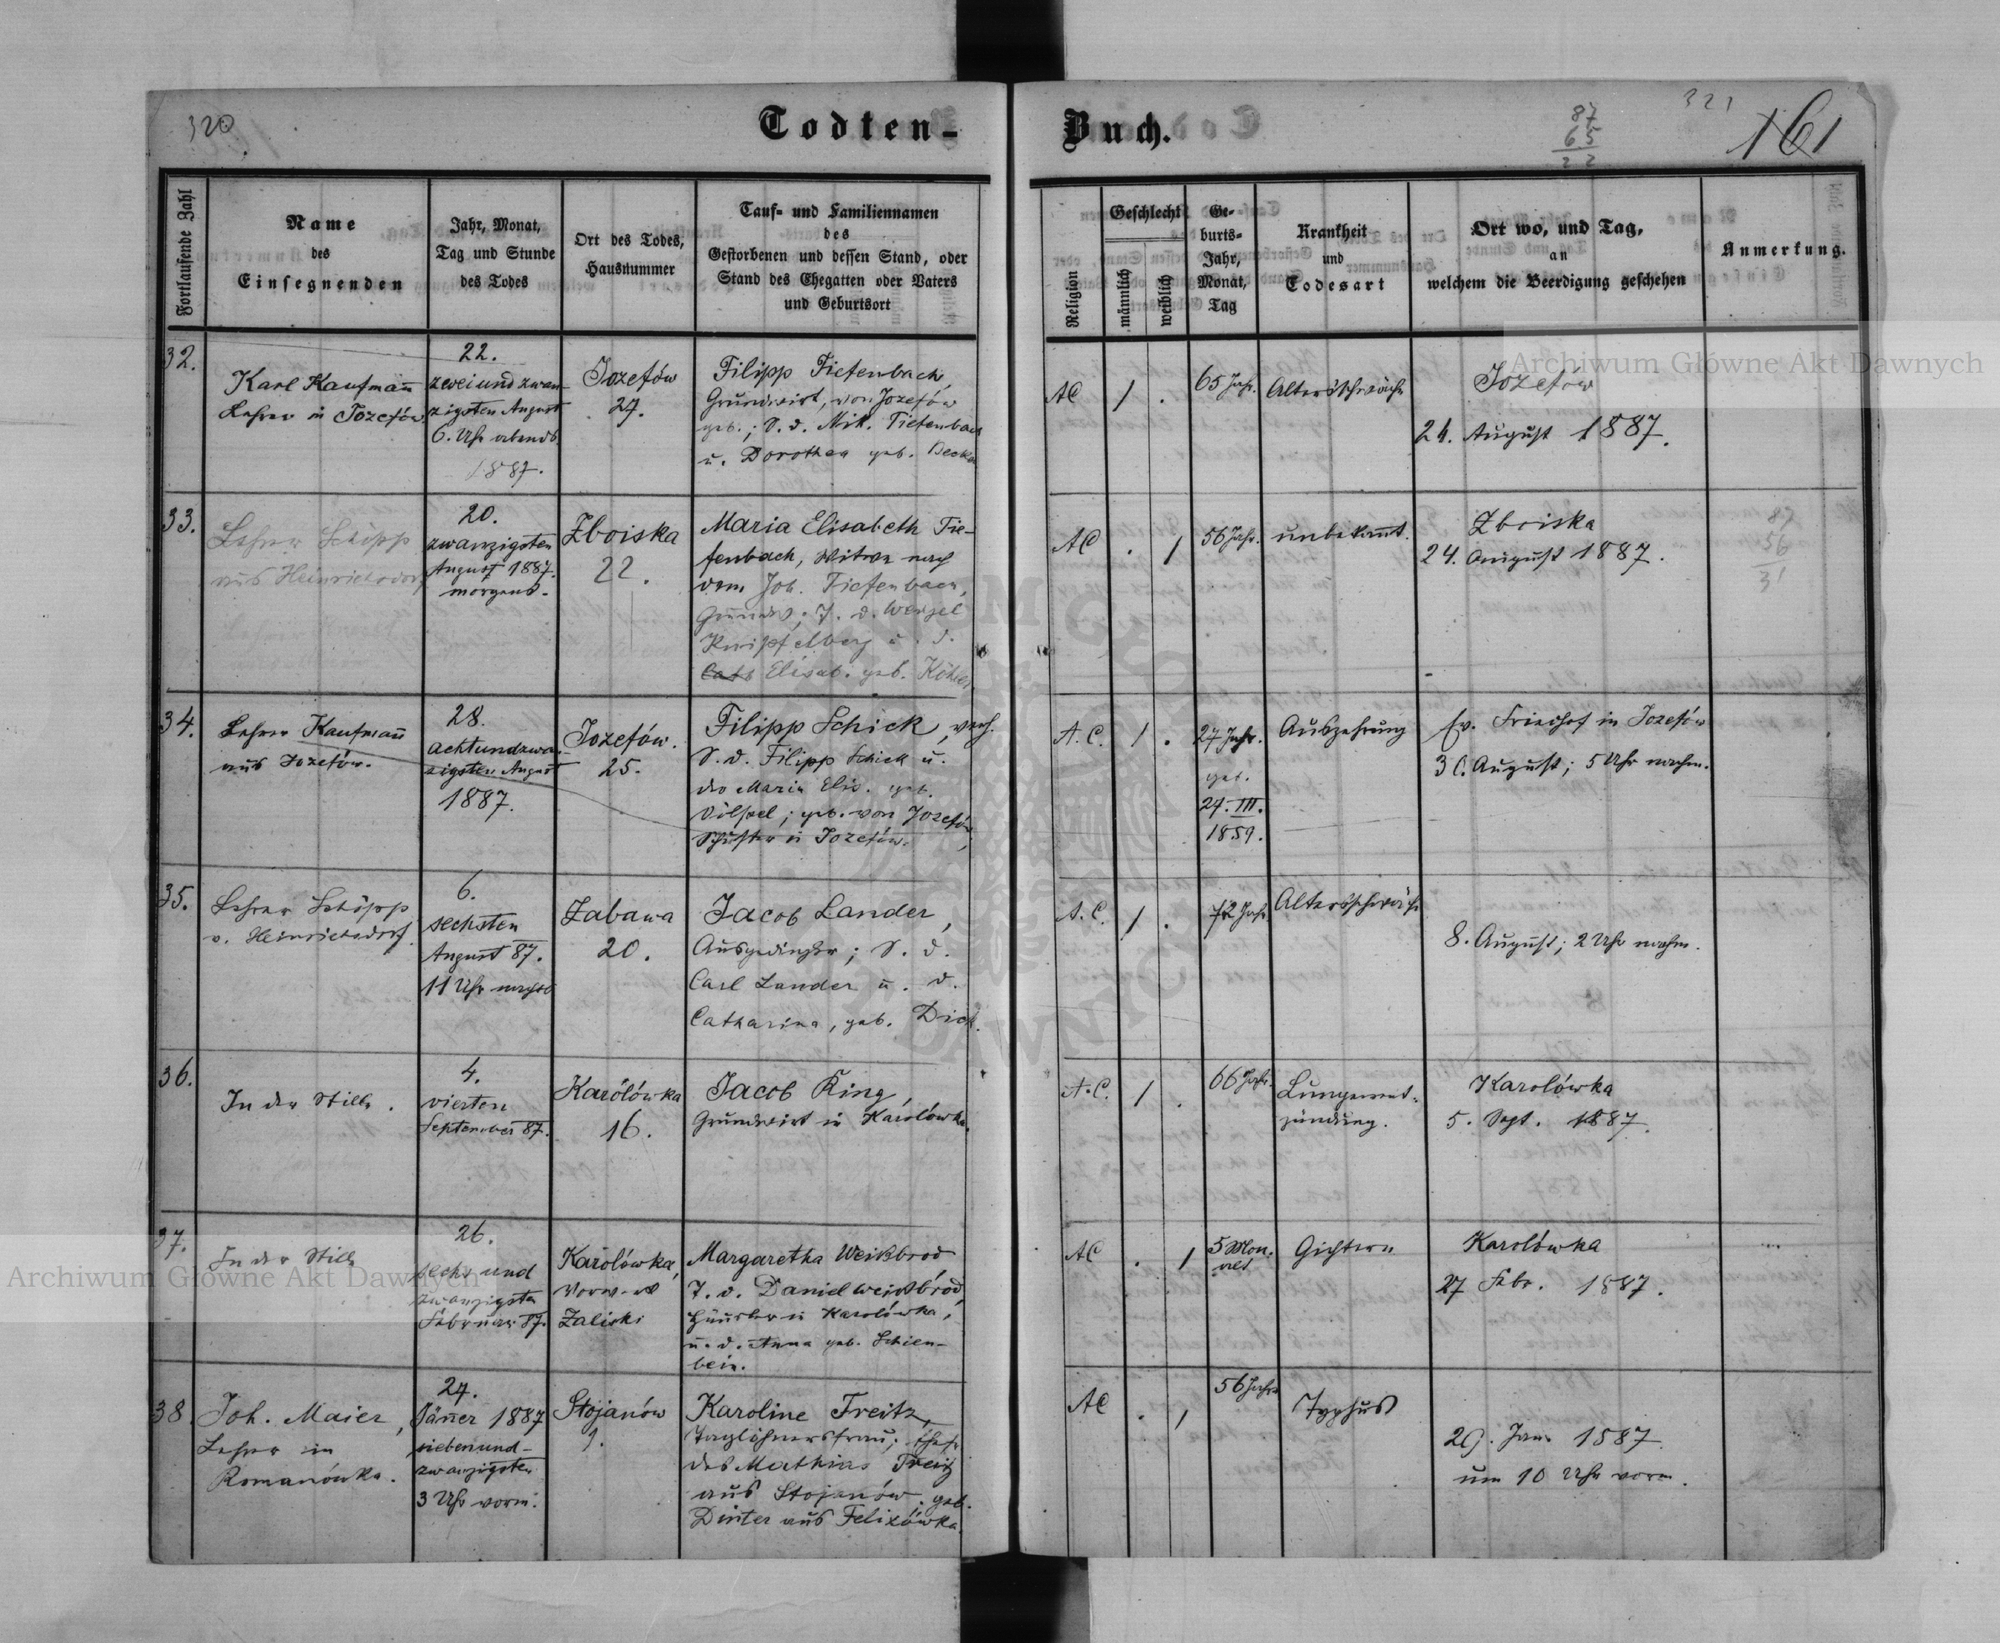 320
Todten-
Buch.
321
161
87
65
22
Fortlaufende Zahl
Name
des
Einsegnenden
Jahr, Monat,
Tag und Stunde
des Todes
Ort des Todes,
Hausnummer
Tauf- und Familiennamen
des
Gestorbenen und dessen Stand, oder
Stand des Ehegatten oder Vaters
und Geburtsort
Religion
Geschlecht
männlich
weiblich
Ge-
burts-
Jahr,
Monat,
Tag
Krankheit
und
Todesart
Ort wo, und Tag,
an
welchem die Beerdigung geschehen
Anmerkung.
32.
Karl Kaufmann
Lehrer in Jozefów
22.
zweiundzwan-
zigsten August
6. Uhr abends
1887.
Jozefów
27.
Filipp Tiefenbach,
Grundwirt, von Jozefów
geb.; S. d. Mik. Tiefenbach
u. Dorothea geb. Becker
AC
1
.
65 Jahr.
Altersschwäche
Jozefów
24. August 1887.
33.
Lehrer Schöpp
aus Heinrichsdorf
20.
zwanzigsten
August 1887.
morgens.
Zboiska
22.
Maria Elisabeth Tie-
fenbach, Witwe nach
dem Joh. Tiefenbach,
Grundw; T. d. Wenzel
u. d.
Elisab. geb. Köhler
AC
.
1
56 Jahr.
unbekannt.
Zboiska
24. August 1887.
87
56
31
34.
Lehrer Kaufmann
aus Jozefów.
28.
achtundzwan-
zigsten August
1887.
Jozefów.
25.
Filipp Schick, verh.
S. d. Filipp Schick u.
der Maria Elis. geb.
Völpel; geb. von Jozefów,
Schuster in Jozefów.
A.C.
1
.
27 Jahr.
geb.
24. III.
1859.
Auszehrung
Ev. Friedhof in Jozefów
30. August; 5 Uhr nachm.
35.
Lehrer Schöpp
v. Heinrichsdorf.
6.
sechsten
August 87.
11 Uhr nachts
Zabawa
20.
Jacob Lander,
Ausgedingter; S. d.
Carl Lander u. d.
Catharina, geb. Dick.
A.C.
1
.
72 Jahr.
Altersschwäche
8. August; 2 Uhr nachm.
36.
In der Stille.
4.
vierten
September 87.
Karolówka
16.
Jacob King,
Grundwirt in Karolówka.
A.C.
1
.
66 Jahr.
Lungenent-
zündung.
Karolówka
5. Sept. 1887.
37.
In der Stille
26.
sechs und
zwanzigsten
Februar 87.
Karolówka,
Vorwerk
Zaliski
Margaretha Weissbrod
T. d. Daniel Weissbrod,
Häusler in Karolówka,
u. d. Anna geb. Schien-
bein.
AC
.
1
5 Mon.
alt
Gichtern
Karolówka
27 Febr. 1887.
38.
Joh. Maier,
Lehrer in
Romanówka.
27.
Jänner 1887
siebenund-
zwanzigsten
3 Uhr vorm.
Stojanów
1.
Karoline Freitz,
Taglöhnersfrau;
des Mathias Freitz
aus Stojanów, geb.
Dinter aus Felizówka.
AC
.
1
56 Jahr
Typhus
29. Jan. 1887.
um 10 Uhr vorm.
Archiwum Główne Akt Dawnych
Archiwum Główne Akt Dawnych